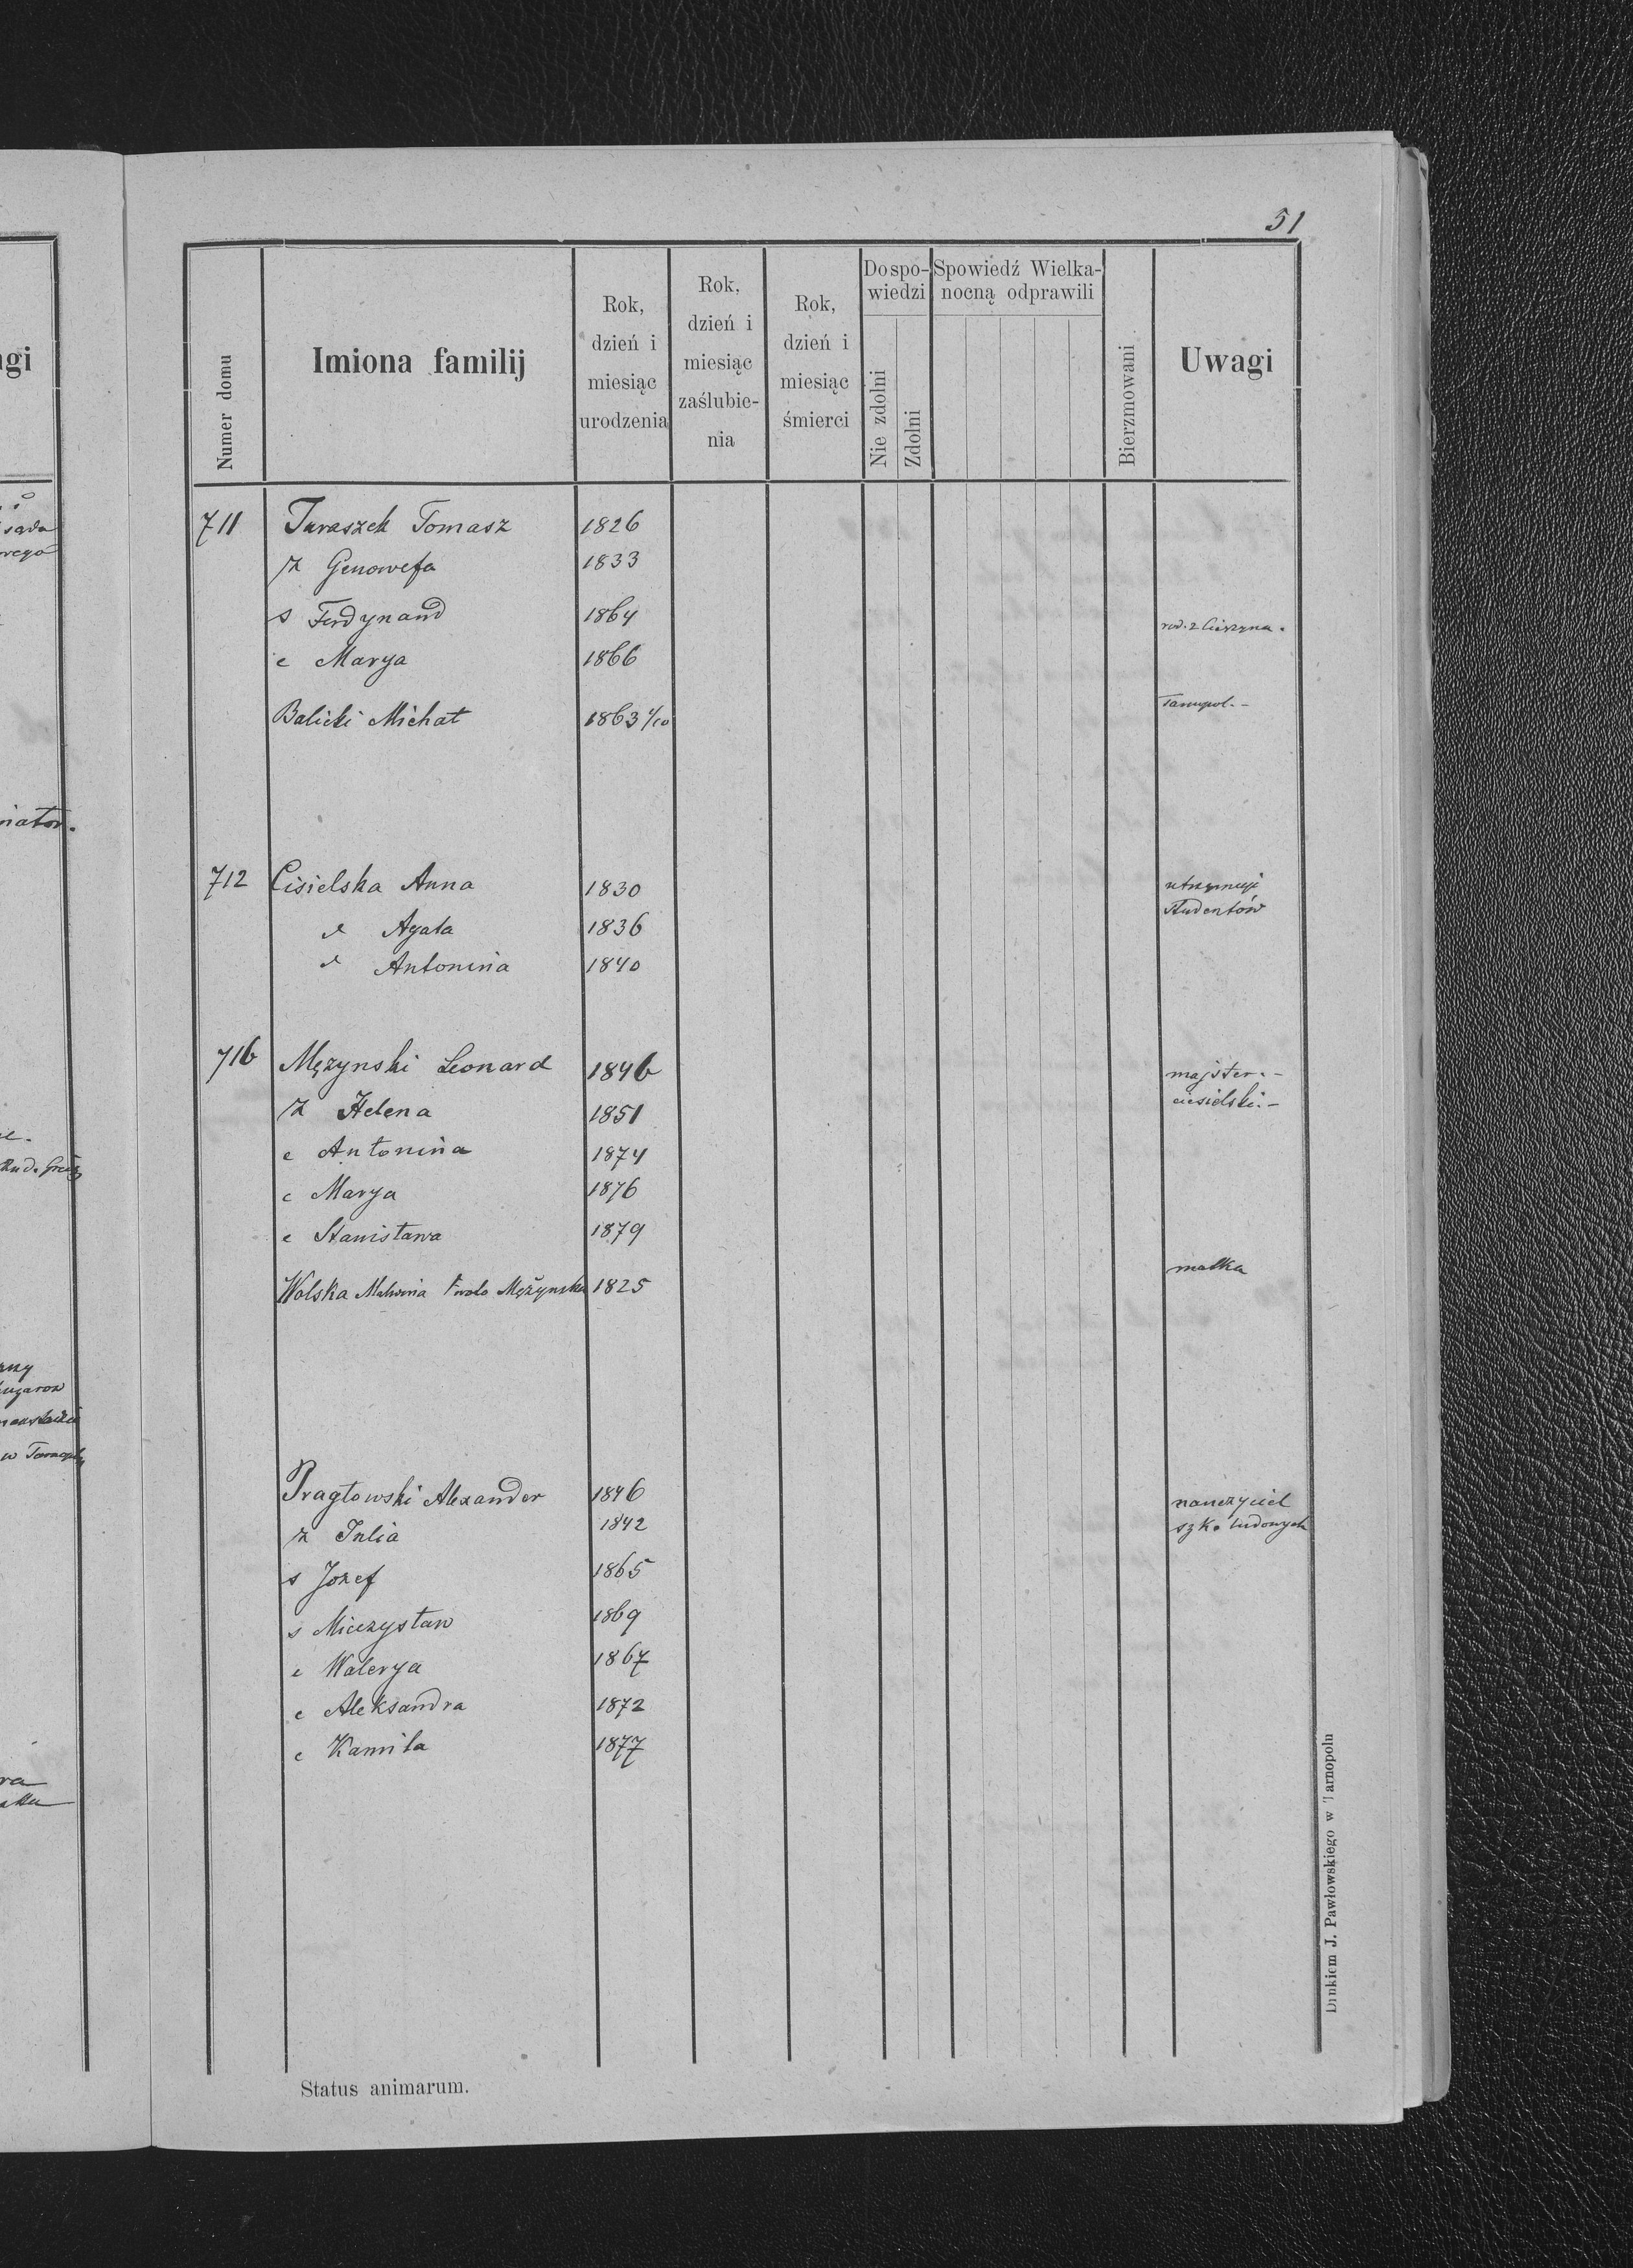 51
Numer domu
Imiona familij
Rok, dzień i miesiąc urodzenia
Rok, dzień i miesiąc zaślubie-nia
Rok, dzień i miesiąc śmierci
Do spo-wiedzi
Nie zdolni
Zdolni
Spowiedź Wielka-nocną odprawili
Bierzmowani
Uwagi
711 Juraszek Tomasz 1826
ż Genowefa 1833
s Ferdynand 1864 rod. z Cieszyna.
c Marya 1866
Balicki Michał 1863 1/10 Tarnopol.-
712 Cisielska Anna 1830 utrzymuje
studentów
" Agata 1836
" Antonina 1840
716 Mężynski Leonard 1846 majster.-
ż Helena 1851 ciesielski.-
c Antonina 1874
c Marya 1876
c Stanisława 1879
Wolska Malwina 1 voto Mężynska 1825 matka
Pragłowski Alexander 1846 nauczyciel
ż Julia 1842 szk. ludowych
s Jozef 1865
s Mieczysław 1869
c Walerya 1867
c Aleksandra 1872
c Kamila 1877
Status animarum.
Drukiem J. Pawłowskiego w Tarnopolu